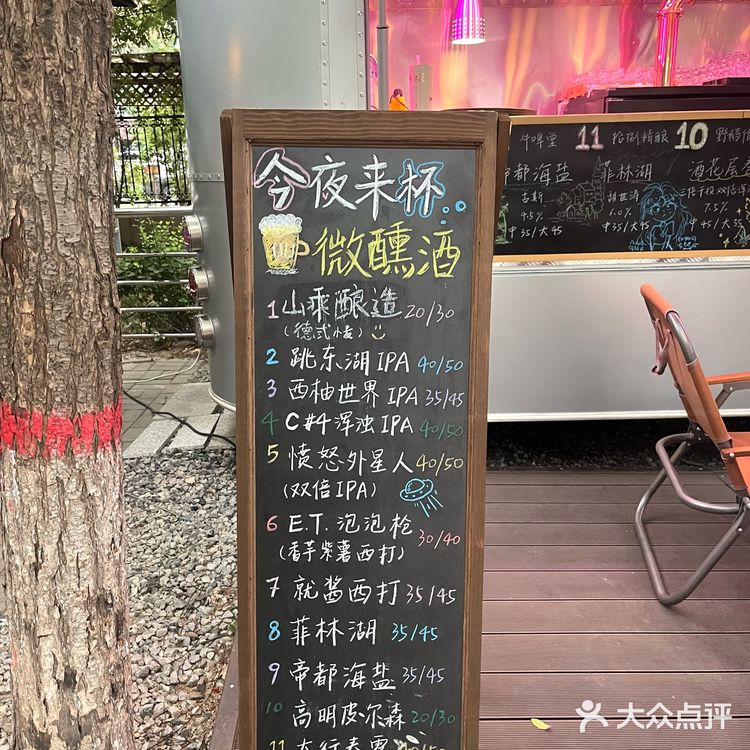 今夜来杯
微醺酒
1 山乘酿造 20/30
(德式小麦)
2 跳东湖IPA 40/50
3 西柚世界IPA 35/45
4 C#4浑浊IPA 40/50
5 愤怒外星人 40/50
(双倍IPA)
6 E.T.泡泡枪 30/40
(香芋紫薯西打)
7 就酱西打 35/45
8 菲林湖 35/45
9 帝都海盐 35/45
10 高明皮尔森 20/30
11
牛啤堂 11 拾捌精酿 10
都海盐 菲林湖 酒花屋
古斯
4.5% 6.0% 7.5%
中35/大45 中35/大45 中35/大55
大众点评